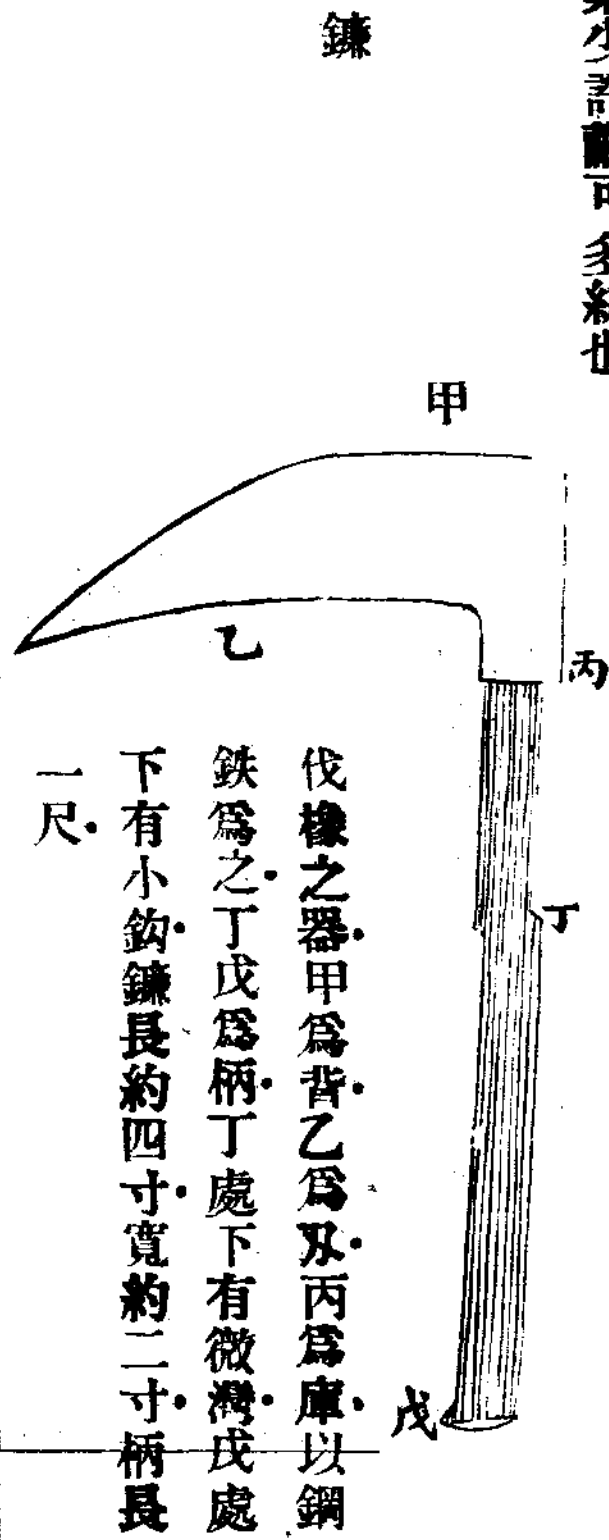 可多絲也
鐮
甲
乙
丙
丁
戊
伐橡之器．甲爲背．乙爲刄．丙爲庫．以鋼
鉄爲之．丁戊爲柄．丁處下有微灣．戊處
下有小鈎．鐮長約四寸．寬約二寸．柄長
一尺．